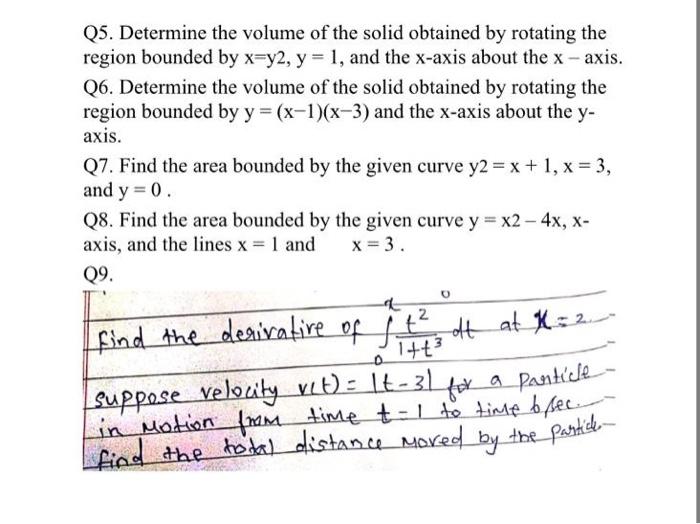 Q5. Determine the volume of the solid obtained by rotating the
region bounded by x=y2, y = 1, and the x-axis about the x – axis.
Q6. Determine the volume of the solid obtained by rotating the
region bounded by y = (x−1)(x−3) and the x-axis about the y-
axis.
Q7. Find the area bounded by the given curve y2 = x + 1, x = 3,
and y = 0 .
Q8. Find the area bounded by the given curve y = x2 – 4x, x-
axis, and the lines x = 1 and x = 3 .
Q9.
find the derivative of ∫₀ˣ t²/(1+t³) dt at x = 2
suppose velocity v(t) = |t-3| for a particle
in motion from time t = 1 to time 6 sec.
find the total distance moved by the particle